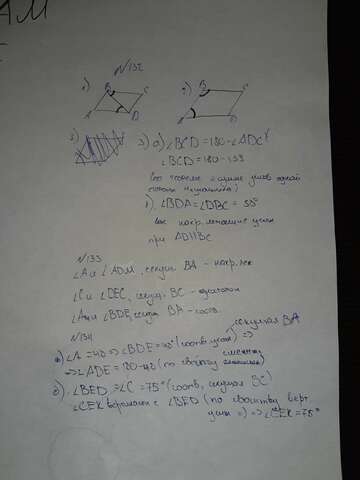 АМ
N132
1)
B
C
A
D
2)
B
C
A
D
3) а) ∠BCD = 180 - ∠ADC
∠BCD = 180 - 133
(по
сумме углов одной
1). ∠BDA = ∠DBC = 50°
как накр. лежащие углы
при AD||BC
N133
∠A и ∠ADM, секущ. BA - накр. леж
∠C и ∠DEC, секущ. BC - односторон
∠A и ∠BDE, секущ BA - соотв.
N134
секущая BA
а) ∠A = 40 => ∠BDE = 40° (соотв. углы) =>
=> ∠ADE = 180-40 (по свойству смежных
б). ∠BED = ∠C = 75° (соотв, секущая BC)
∠CEK вертикален с ∠BED (по свойству верт.
углы =) => ∠CEK = 75°